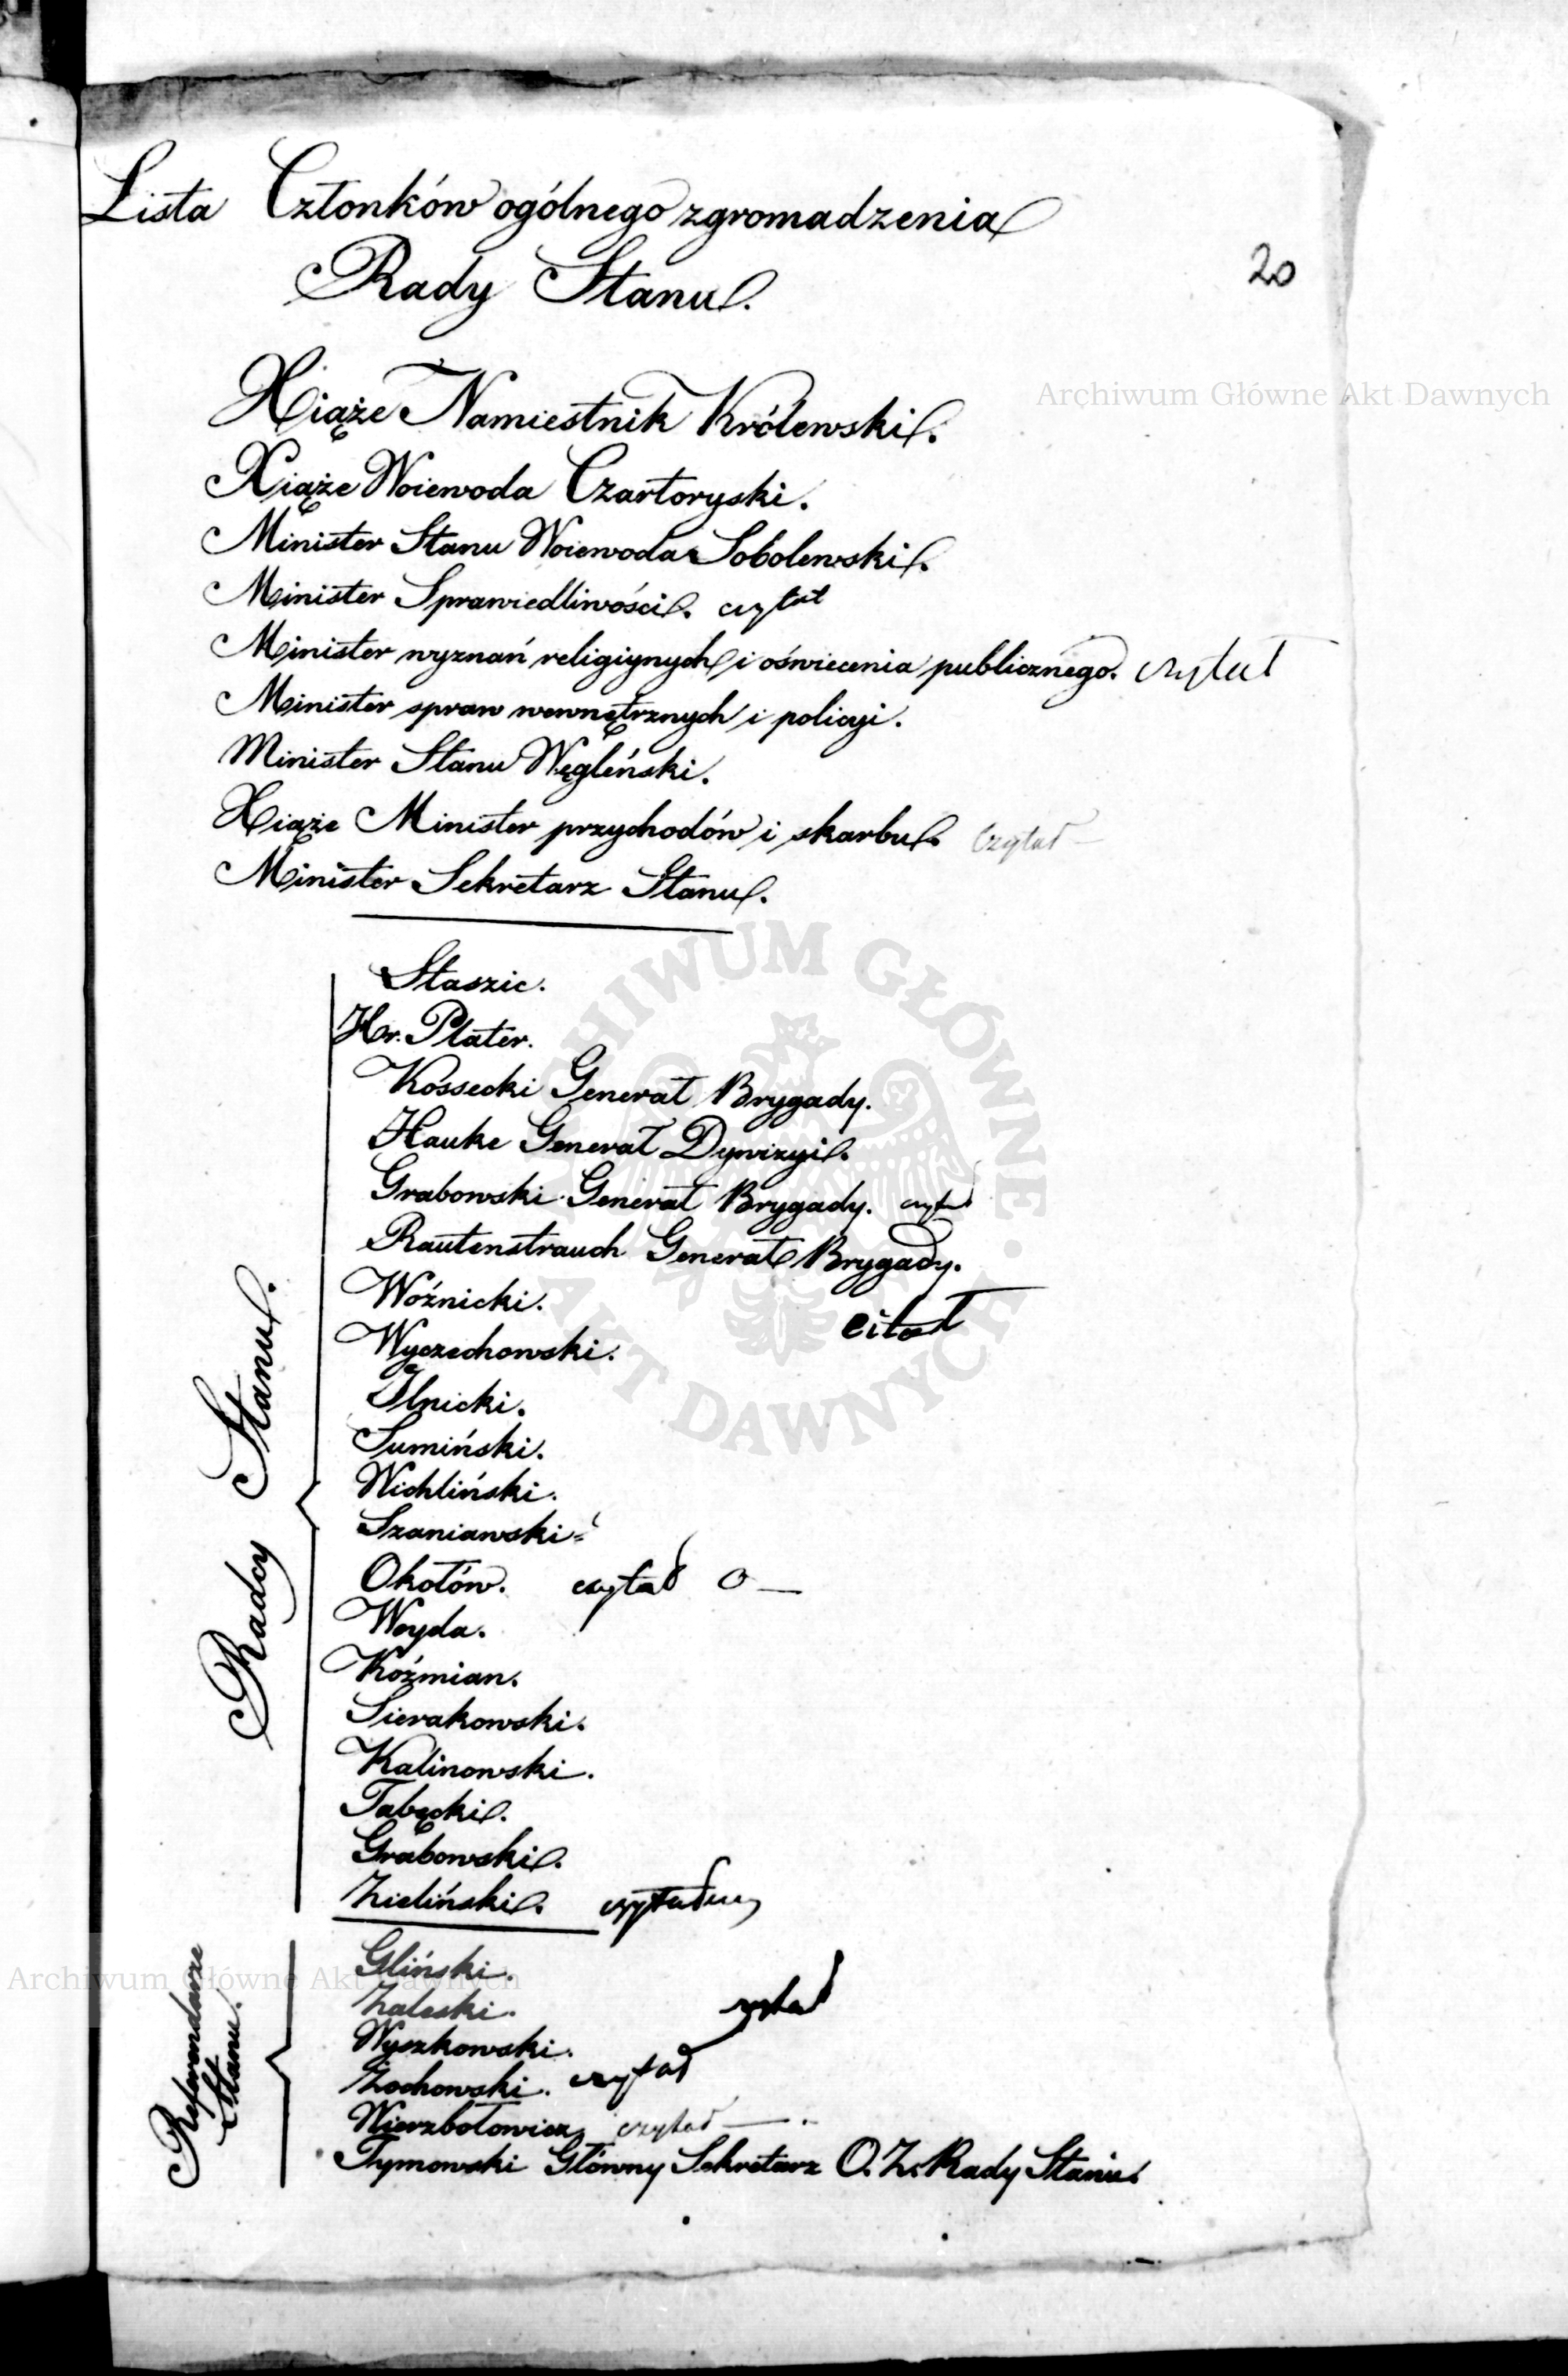 Lista Członków ogólnego zgromadzenia
Rady Stanu.
20
Archiwum Główne Akt Dawnych
Xiąże Namiestnik Królewski.
Xiąże Woiewoda Czartoryski.
Minister Stanu Woiewoda Sobolewski.
Minister Sprawiedliwości. czytał
Minister wyznań religiynych i oświecenia publicznego. czytał
Minister spraw wewnętrznych i policyi.
Minister Stanu Węgleński.
Xiąże Minister przychodów i skarbu. Czytał —
Minister Sekretarz Stanu.
ARCHIWUM GŁÓWNE AKT DAWNYCH
Radcy Stanu.
Staszic.
Hr. Plater.
Kossecki Generał Brygady.
Hauke Generał Dywizyi.
Grabowski Generał Brygady. czytał
Rautenstrauch Generał Brygady.
Woźnicki.
citał
Wyczechowski.
Ilnicki.
Sumiński.
Wichliński.
Szaniawski.
Okołów. czytał O —
Woyda.
Koźmian.
Sierakowski.
Kalinowski.
Tabęcki.
Grabowski.
Zieliński. czytałem
Referendarze
Stanu.
Gliński.
Archiwum Główne Akt Dawnych
Zaleski. czytał
Wyszkowski.
Żochowski. czytał
Wierzbołowicz. czytał —
Tymowski Główny Sekretarz O. Z. Rady Stanu.